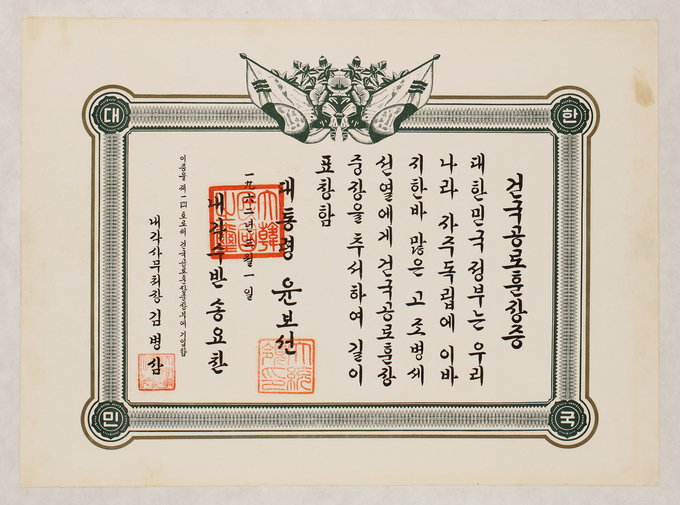 대한
민국
건국공로훈장증
대한민국 정부는 우리
나라 자주독립에 이바
지한바 많은 고 조병세
선열에게 건국공로훈장
중장을 추서하여 길이
표창함
대통령 윤보선
一九六二년 三월 一일
내각수반 송요찬
이증을 제一四호로써 건국공로훈장부에 기입함
내각사무처장 김병삼
大韓民國之璽
大統領印